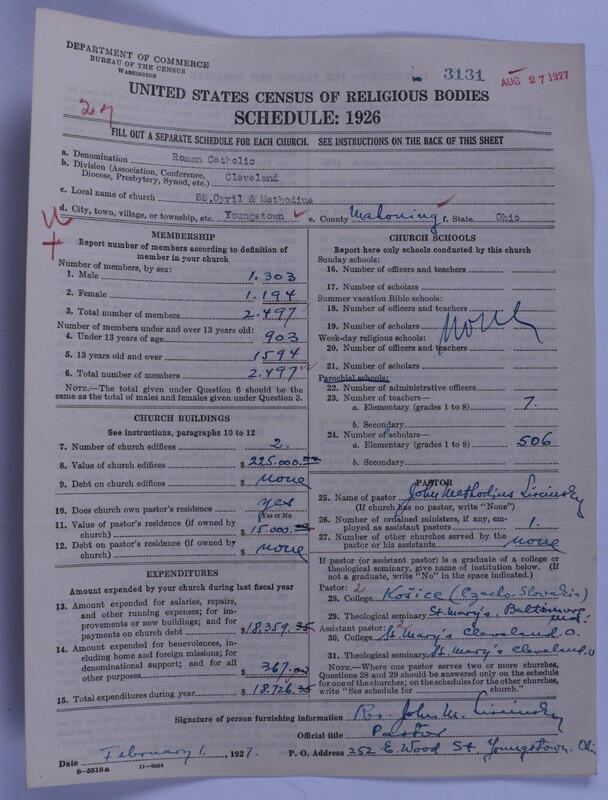 DEPARTMENT OF COMMERCE
BUREAU OF THE CENSUS
WASHINGTON
3131
AUG 27 1927
UNITED STATES CENSUS OF RELIGIOUS BODIES
SCHEDULE: 1926
27
FILL OUT A SEPARATE SCHEDULE FOR EACH CHURCH. SEE INSTRUCTIONS ON THE BACK OF THIS SHEET
a. Denomination Roman Catholic
b. Division (Association, Conference, Diocese, Presbytery, Synod, etc.) Cleveland
c. Local name of church SS.Cyril & Methodius
d. City, town, village, or township, etc. Youngstown e. County Mahoning f. State Ohio
MEMBERSHIP
Report number of members according to definition of
member in your church
Number of members, by sex:
1. Male 1.303
2. Female 1.194
3. Total number of members 2.497
Number of members under and over 13 years old:
4. Under 13 years of age 903
5. 13 years old and over 1594
6. Total number of members 2.497
NOTE.—The total given under Question 6 should be
the same as the total of males and females given under Question 3.
CHURCH BUILDINGS
See instructions, paragraphs 10 to 12
7. Number of church edifices 2.
8. Value of church edifices $ 225.000.
9. Debt on church edifices $ none
10. Does church own pastor's residence yes
(Yes or No)
11. Value of pastor's residence (if owned by
church) $ 15.000.
12. Debt on pastor's residence (if owned by
church) $ none
EXPENDITURES
Amount expended by your church during last fiscal year
13. Amount expended for salaries, repairs,
and other running expenses; for im-
provements or new buildings; and for
payments on church debt $ 18,359.35
14. Amount expended for benevolences, in-
cluding home and foreign missions; for
denominational support; and for all
other purposes $ 367.00
15. Total expenditures during year $ 18.726.35
CHURCH SCHOOLS
Report here only schools conducted by this church
Sunday schools:
16. Number of officers and teachers
17. Number of scholars
Summer vacation Bible schools:
18. Number of officers and teachers
19. Number of scholars none
Week-day religious schools:
20. Number of officers and teachers
21. Number of scholars
Parochial schools:
22. Number of administrative officers
23. Number of teachers—
a. Elementary (grades 1 to 8) 7.
b. Secondary
24. Number of scholars—
a. Elementary (grades 1 to 8) 506
b. Secondary
PASTOR
25. Name of pastor John Methodius Liscinsky
(If church has no pastor, write "None")
26. Number of ordained ministers, if any, em-
ployed as assistant pastors 1.
27. Number of other churches served by the
pastor or his assistants none
If pastor (or assistant pastor) is a graduate of a college or
theological seminary, give name of institution below. (If
not a graduate, write "No" in the space indicated.)
Pastor: 2
28. College Košice (Czecho-Slovakia)
29. Theological seminary St. Mary's. Baltimore Md.
Assistant pastor: 2
30. College St. Mary's Cleveland O.
31. Theological seminary St. Mary's Cleveland. O
NOTE.—Where one pastor serves two or more churches,
Questions 28 and 29 should be answered only on the schedule
for one of the churches; on the schedules for the other churches,
write "See schedule for church."
Signature of person furnishing information Rev. John M. Liscinsky
Official title Pastor
Date February 1. , 1927. P. O. Address 252 E. Wood St. Youngstown. Ohio
8-5518a 11-9054